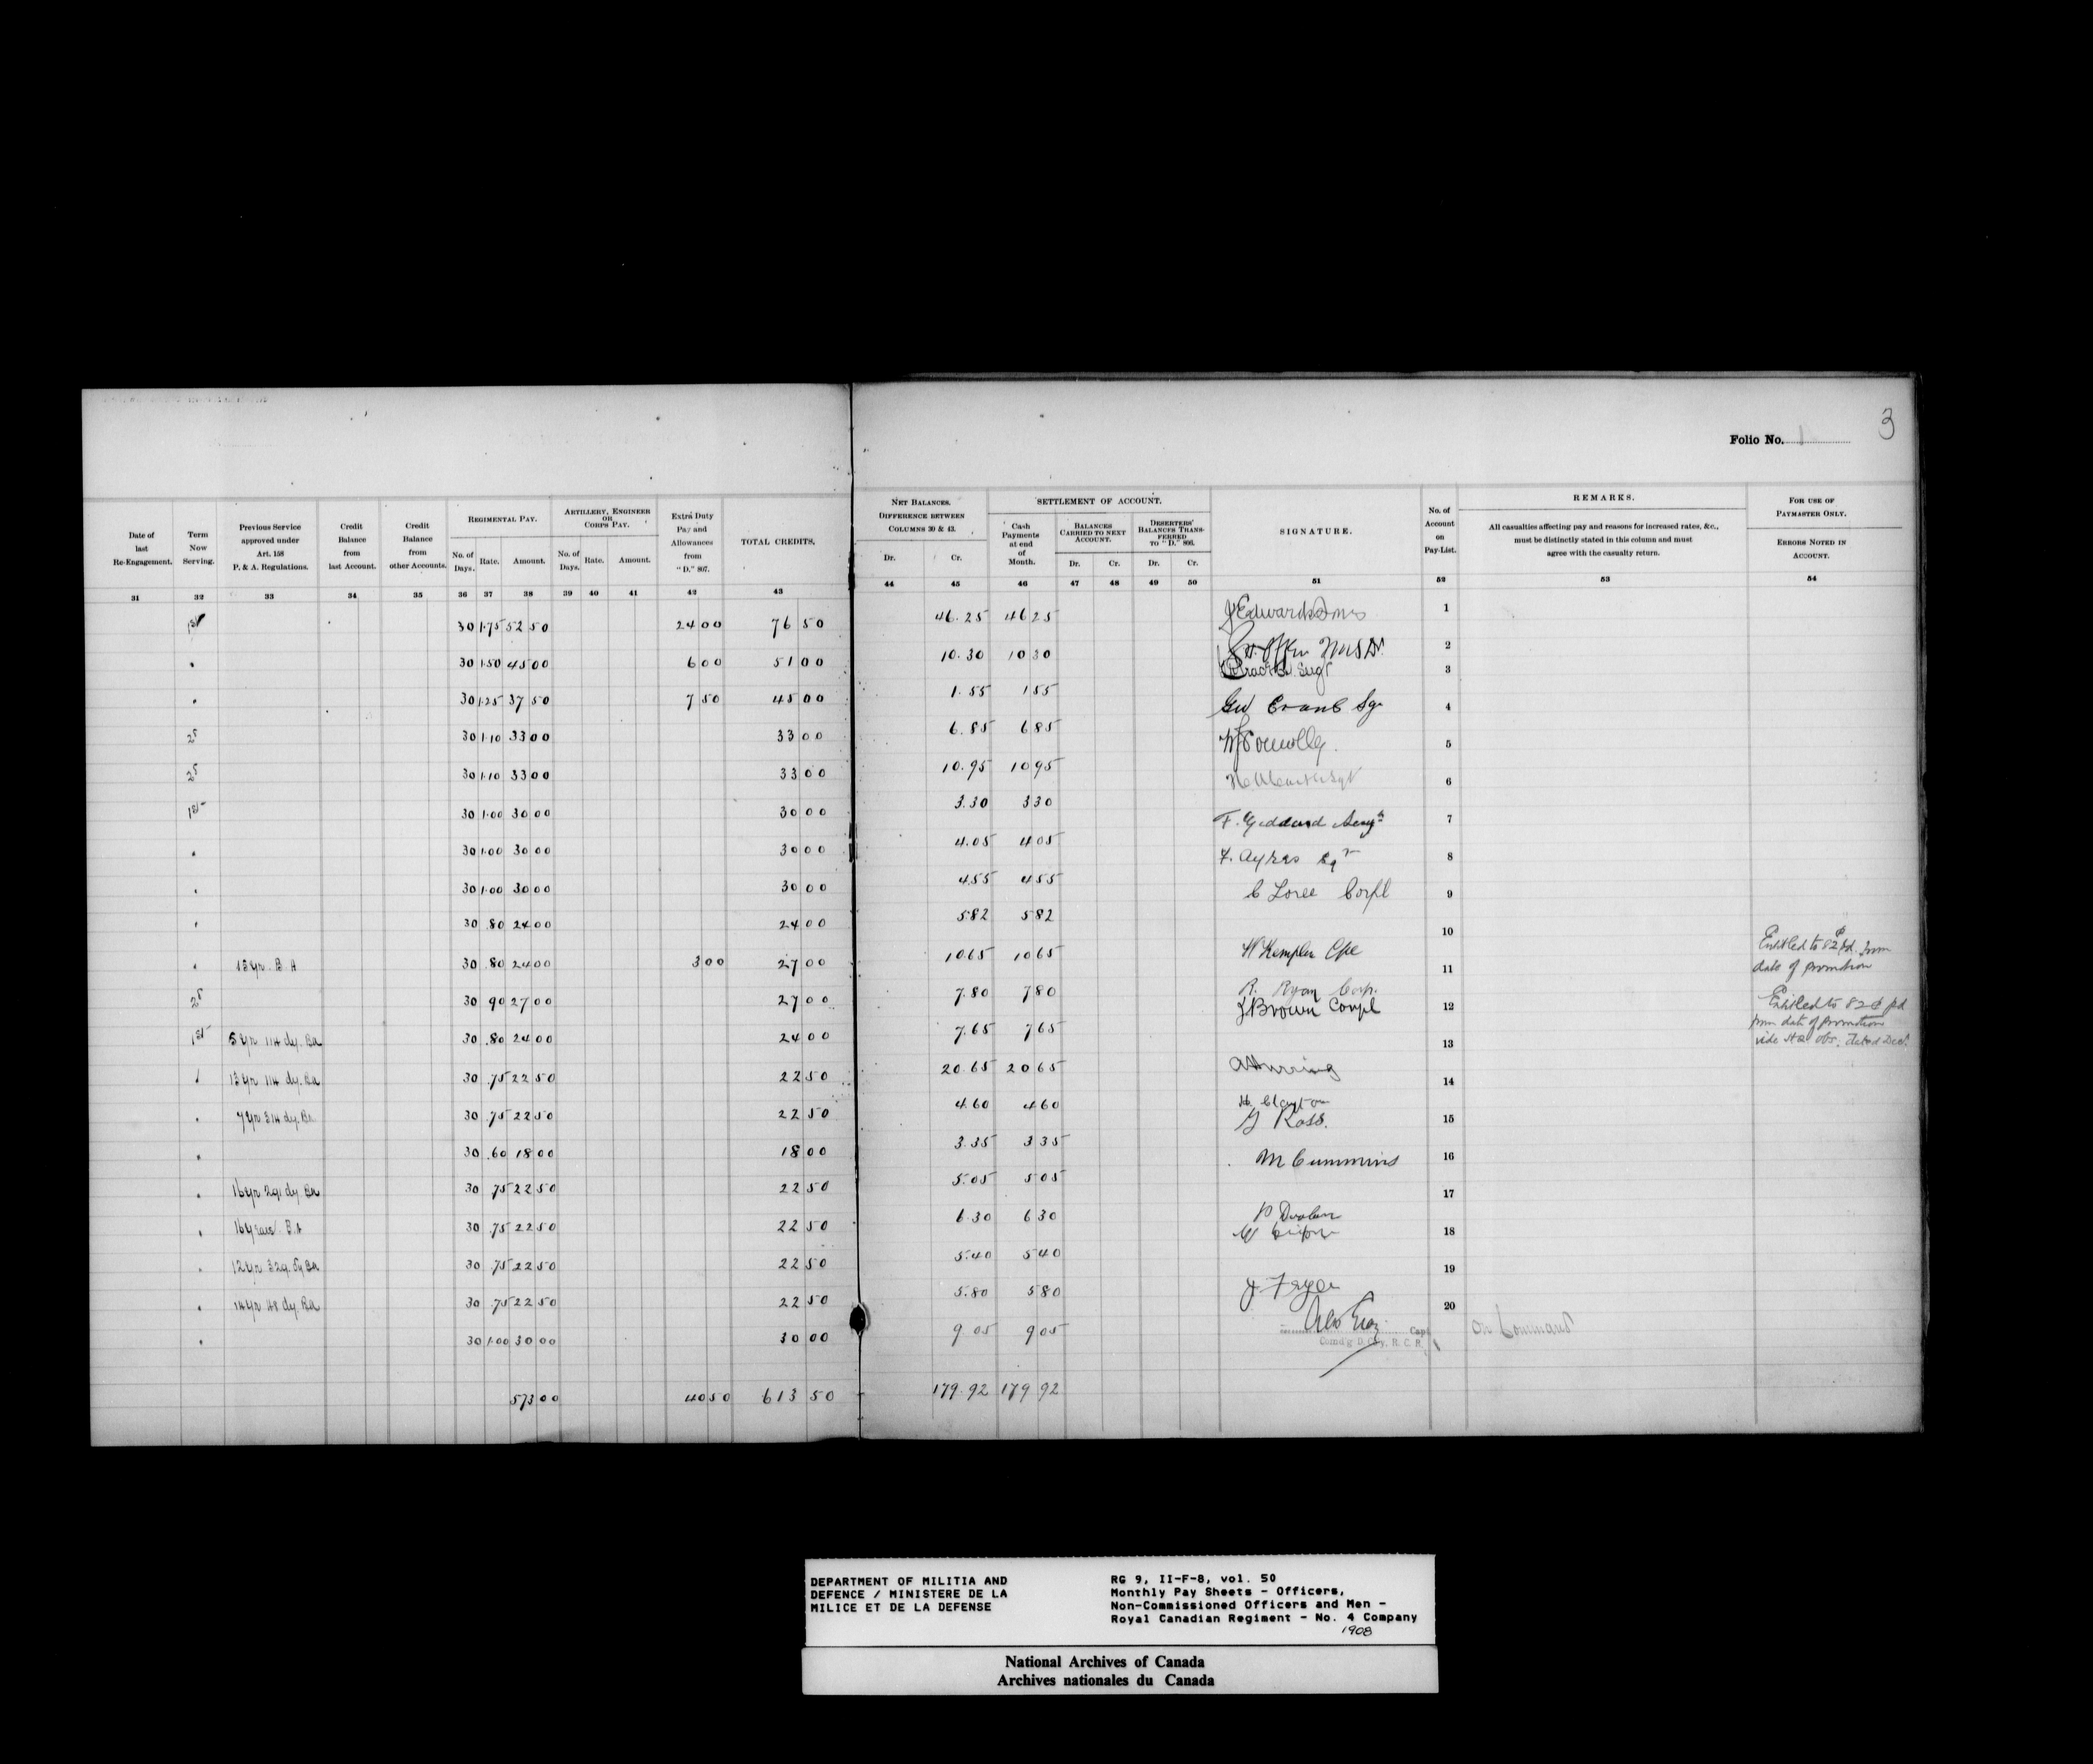 3
Folio No. 1
Date of last Re-Engagement.
Term Now Serving.
Previous Service approved under Art. 158 P. & A. Regulations.
Credit Balance from last Account.
Credit Balance from other Accounts.
REGIMENTAL PAY.
No. of Days. Rate. Amount.
ARTILLERY, ENGINEER OR CORPS PAY.
No. of Days. Rate. Amount.
Extra Duty Pay and Allowances from "D." 807.
TOTAL CREDITS.
NET BALANCES. DIFFERENCE BETWEEN COLUMNS 30 & 43.
Dr. Cr.
SETTLEMENT OF ACCOUNT.
Cash Payments at end of Month.
BALANCES CARRIED TO NEXT ACCOUNT.
Dr. Cr.
DESERTERS' BALANCES TRANSFERRED TO "D." 806.
Dr. Cr.
SIGNATURE.
No. of Account on Pay-List.
REMARKS.
All casualties affecting pay and reasons for increased rates, &c., must be distinctly stated in this column and must agree with the casualty return.
FOR USE OF PAYMASTER ONLY.
ERRORS NOTED IN ACCOUNT.
31 32 33 34 35 36 37 38 39 40 41 42 43 44 45 46 47 48 49 50 51 52 53 54
1st 30 1.75 52 50 24 00 76 50 46.25 46 25 1
" 30 1.50 45 00 6 00 51 00 10.30 10 30 2
" 30 1.25 37 50 7 50 45 00 1.55 1 55 Sergt 3
2 30 1.10 33 00 33 00 6.85 6 85 Geo Evans Sgt 4
2 30 1.10 33 00 33 00 10.95 10 95 5
1st 30 1.00 30 00 30 00 3.30 3 30 6
" 30 1.00 30 00 30 00 4.05 4 05 F. Goddard Sergt 7
" 30 1.00 30 00 30 00 4.55 4 55 F. Ayres Sgt 8
" 30 .80 24 00 24 00 5.82 5 82 C Loree Corpl 9
" 13 yr. B A 30 .80 24 00 3 00 27 00 10.65 10 65 10
2 30 90 27 00 27 00 7.80 7 80 W Kemplen Cpl 11
1st 5 yr 114 dy. Ba 30 .80 24 00 24 00 7.65 7 65 R. Ryan Corp. J Brown Corpl 12
" 13 yr 114 dy. Ba 30 .75 22 50 22 50 20.65 20 65 13
" 7 yr 314 dy. Ba 30 .75 22 50 22 50 4.60 4 60 14
" 30 .60 18 00 18 00 3.35 3 35 H. Clayton G Ross. 15
" 16 yr 291 dy Ba 30 .75 22 50 22 50 5.05 5 05 M Cummins 16
" 16 years B.A 30 .75 22 50 22 50 6.30 6 30 17
" 12 yr 329 dy Ba 30 .75 22 50 22 50 5.40 5 40 18
" 14 yr 48 dy. Ba 30 .75 22 50 22 50 5.80 5 80 19
" 30 1.00 30 00 30 00 9 05 9 05 J. Fryer 20
Entitled to 82¢ pd. from
date of promotion
Entitled to 82¢ pd
from date of promotion
vide
Capt
Comd'g D Coy, R. C. R.
On Command
573 00 40 50 613 50 179.92 179 92
DEPARTMENT OF MILITIA AND
DEFENCE / MINISTERE DE LA
MILICE ET DE LA DEFENSE
RG 9, II-F-8, vol. 50
Monthly Pay Sheets - Officers,
Non-Commissioned Officers and Men -
Royal Canadian Regiment - No. 4 Company
1908
National Archives of Canada
Archives nationales du Canada